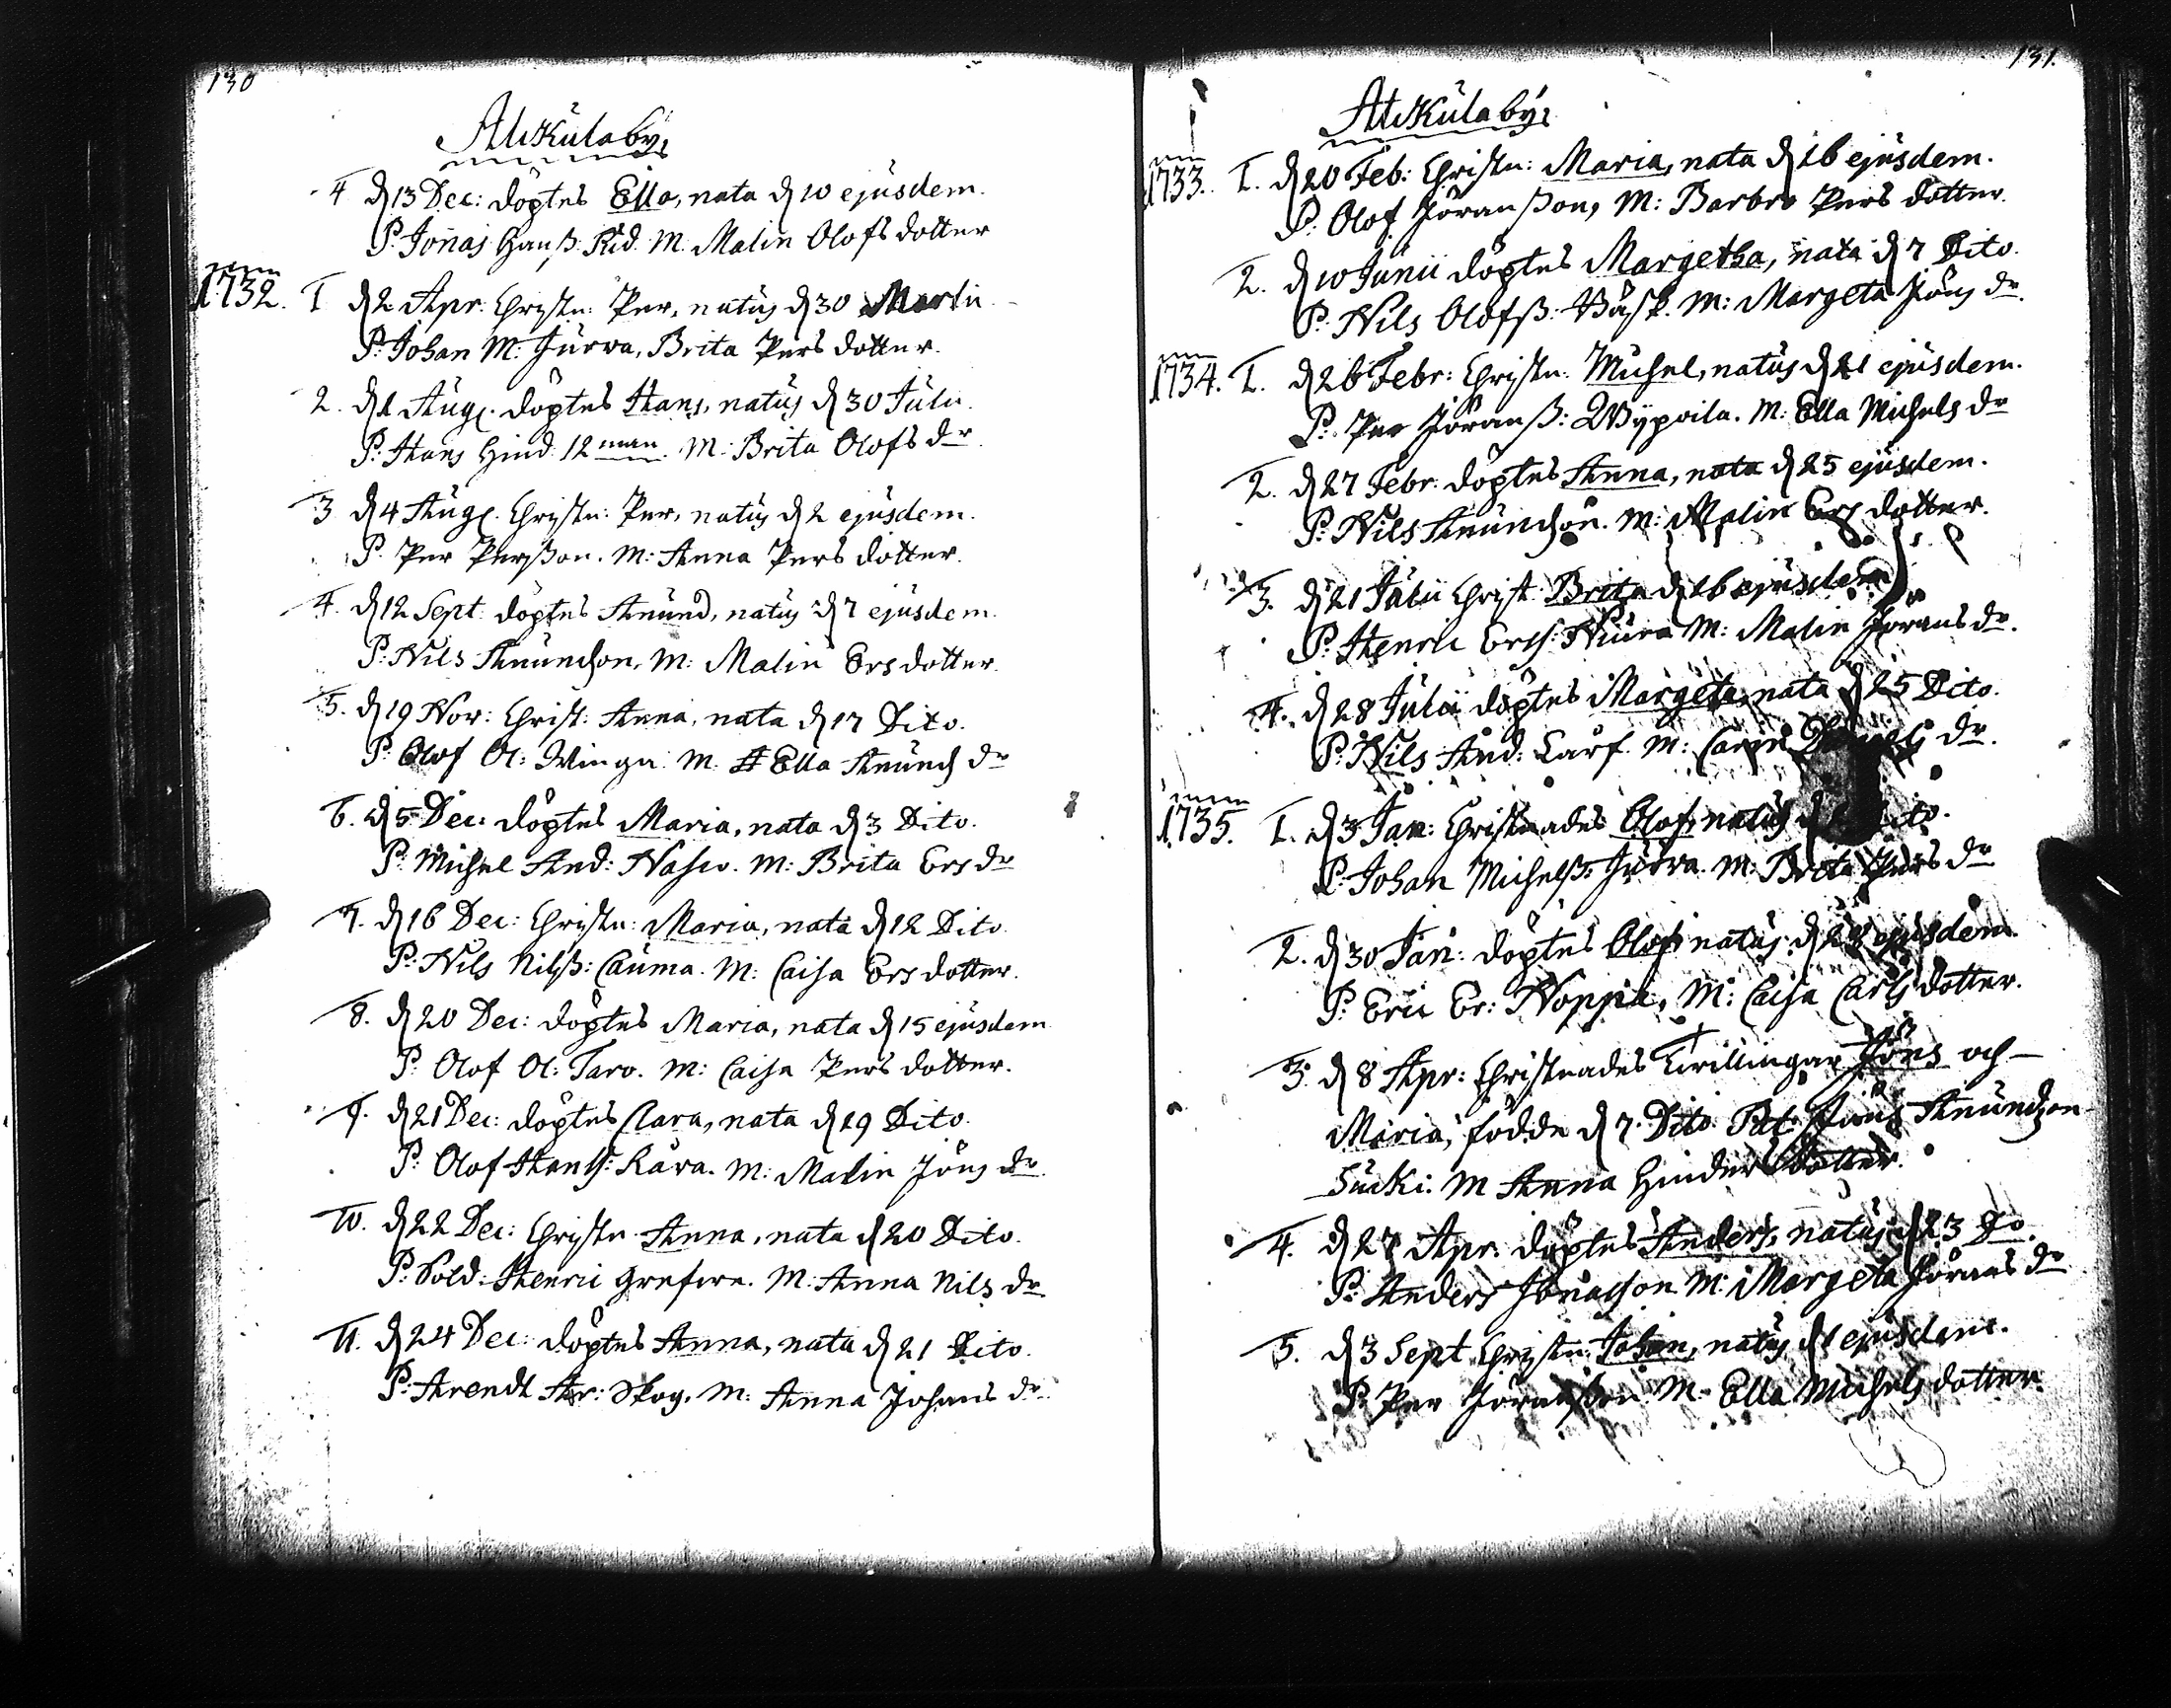 130
Alkkulaby,
4 d. 13 Dec: döptes Ella, nata d. 10 ejusdem.
P. Jonas Hanß: Rid. M. Malin Olofs dotter
1732. 1 d. 2 Apr: Christn: Per, natus d. 30 Martii
P: Johan M: Jurwa, Brita Pers dotter.
2. d. 1 Aug. döptes Hans, natus d. 30 Julii.
P: Hans Hind 12 man. M: Brita Olofs dr
3 d. 4 Aug. Christn: Per, natus d. 2 ejusdem.
P. Per Perßon. M: Anna Pers dotter.
4. d. 12 Sept döptes Anund, natus d. 7 ejusdem.
P: Nils Anundson, M: Malin Ers dotter.
5. d. 19 Nov: Christ: Anna, nata d. 17 Dito.
P: Olof Ol: Winga. M. Ella Anunds dr
6. d. 5 Dec: döptes Maria, nata d. 3 Dito.
P: Michel And: Nasio. M: Brita Ers dr
7. d. 16 Dec: Christn: Maria, nata d. 12 Dito
P: Nils Nilß: Cauma. M: Caisa Ers dotter.
8. d. 20 Dec: döptes Maria, nata d. 15 ejusdem
P: Olof Ol: Taro. M: Caisa Pers dotter.
9. d. 21 Dec: döptes Clara, nata d. 19 Dito.
P: Olof Hanß: Kära. M: Malin Jöns dr.
10. d. 22 Dec: Christn Anna, nata d. 20 Dito.
P: Sold: Henric M: Anna Nils dr.
11. d. 24 Dec: döptes Anna, nata d. 21 Dito.
P: Arendt Ar: Skog. M: Anna Johans dr.
131.
Alkkulaby,
1733. 1. d. 20 Feb: Christn: Maria, nata d. 16 ejusdem.
P: Olof Jöranßon, M: Barbro Pers dotter.
2. d. 10 Junii döptes Margetha, nata d. 7 Dito.
P: Nils Olofß: M: Margeta Jöns dr.
1734. 1. d. 26 Febr: Christn: Michel, natus d. 21 ejusdem.
P: Per Jöranß: Wypoila. M: Ella Michels dr
2. d. 27 Febr: döptes Anna, nata d. 25 ejusdem.
P: Nils Anundson. M: Malin Ers dotter.
3. d. 21 Julii Christ Brita d. 16 ejusdem
P: Henric Erss: Niura M: Malin Jörans dr.
4. d. 28 Julii döptes Margeta, nata d. 25 Dito.
P: Nils And: Larf. M: Carin dr.
1735. 1. d. 3 Jan: Christnades Olof, natus d. Dito.
P: Johan Michelß: Jurwa. M: Brita Pers dr
2. d. 30 Jan: döptes Olof, natus d. 28 ejusdem.
P: Eric Er: Noppa, M: Caisa Carls dotter.
3. d. 8 Apr: Christnades Twillingar Jöns och
Maria, födde d. 7 Dito. Pat: Jöns Anundson
Sucki. M Anna Hinders dotter.
4. d. 27 Apr: döptes Anders, natus d. 23 Do.
P: Anders Jonasson M: Margeta Jörans dr
5. d. 3 Sept Christn: Johan, natus d. 1 ejusdem.
P: Per Jöranßon M: Ella Michels dotter.